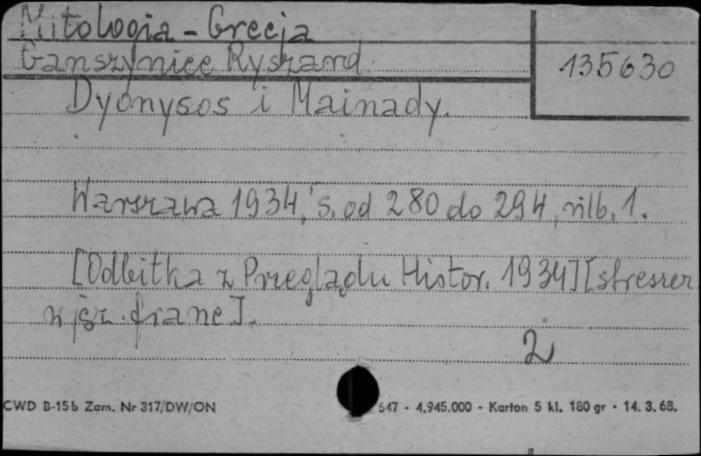 Mitologia - Grecja
Ganszyniec Ryszard.
135630
Dyonysos i Mainady.
Warszawa 1934, s. od 280 do 294, nlb. 1.
[Odbitka z Przeglądu Histor. 1934] [streszcz.
w jęz. franc].
2
CWD B-15b Zam. Nr 317/DW/ON
647 - 4.945.000 - Karton 5 kl. 180 gr - 14. 3. 68.